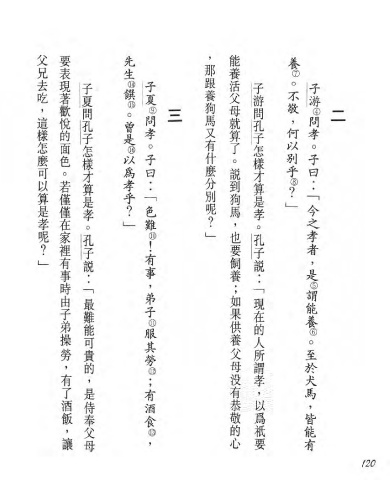 二
子游④問孝。子曰：「今之孝者，是⑤謂能養⑥。至於犬馬，皆能有
養⑦。不敬，何以別乎⑧？」
子游問孔子怎樣才算是孝。孔子説：「現在的人所謂孝，以爲衹要
能養活父母就算了。説到狗馬，也要飼養；如果供養父母没有恭敬的心
，那跟養狗馬又有什麽分別呢？」
三
子夏⑨問孝。子曰：「色難⑩！有事，弟子⑪服其勞⑫；有酒食⑬，
先生⑭饌⑮。曾是⑯以爲孝乎？」
子夏問孔子怎樣才算是孝。孔子説：「最難能可貴的，是侍奉父母
要表現著歡悅的面色。若僅僅在家裡有事時由子弟操勞，有了酒飯，讓
父兄去吃，這樣怎麽可以算是孝呢？」
120